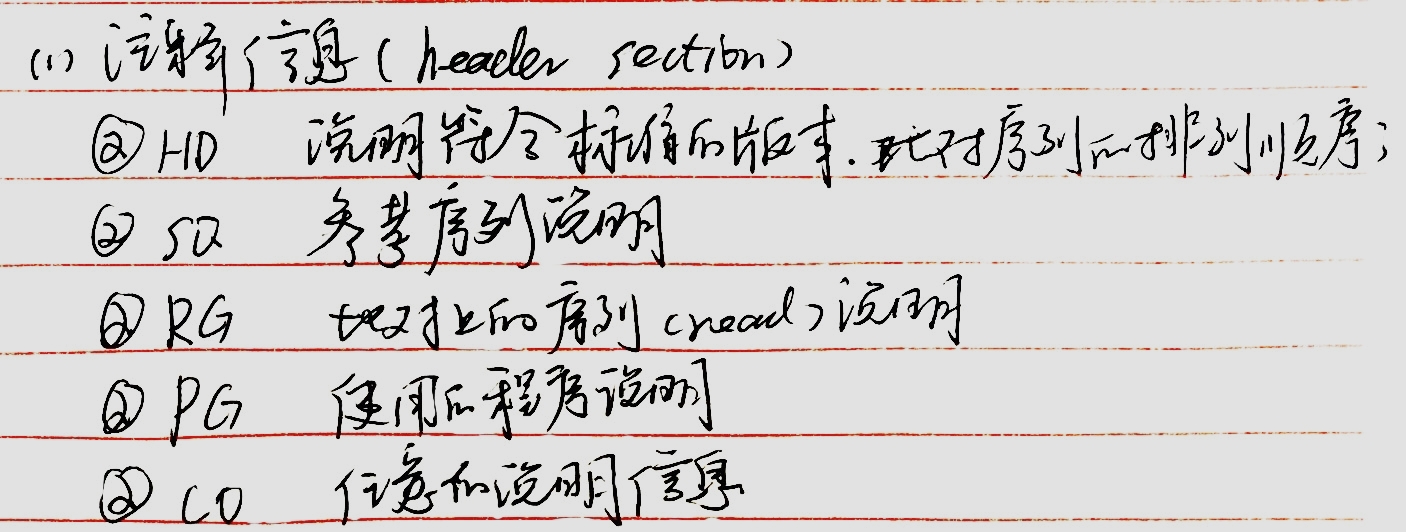 (1) 注释信息(header section)
@HD 说明符合标准的版本.比对序列的排列顺序;
@SQ 参考序列说明
@RG 比对上的序列(read)说明
@PG 使用的程序说明
@CO 任意的说明信息